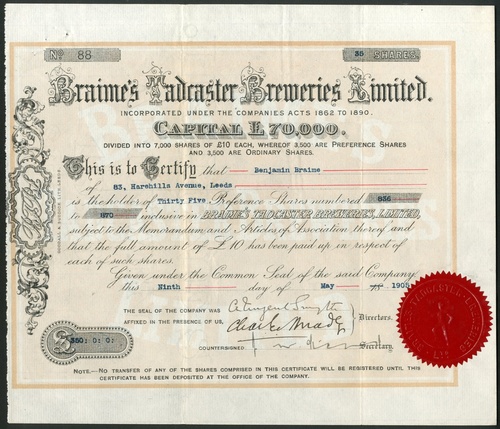 No 88 35 SHARES.
Braime's Tadcaster Breweries Limited.
INCORPORATED UNDER THE COMPANIES ACTS 1862 TO 1890.
CAPITAL £70,000.
DIVIDED INTO 7,000 SHARES OF £10 EACH, WHEREOF 3,500 ARE PREFERENCE SHARES
AND 3,500 ARE ORDINARY SHARES.
This is to Certify that Benjamin Braime
of 83, Harehills Avenue, Leeds
is the holder of Thirty Five Preference Shares numbered 836
to 870 inclusive in BRAIME'S TADCASTER BREWERIES, LIMITED,
subject to the Memorandum and Articles of Association thereof and
that the full amount of £10 has been paid up in respect of
each of such shares.
Given under the Common Seal of the said Company
this Ninth day of May 1905
THE SEAL OF THE COMPANY WAS
AFFIXED IN THE PRESENCE OF US,
Directors.
£350: 0: 0:
COUNTERSIGNED Secretary.
NOTE.—NO TRANSFER OF ANY OF THE SHARES COMPRISED IN THIS CERTIFICATE WILL BE REGISTERED UNTIL THIS
CERTIFICATE HAS BEEN DEPOSITED AT THE OFFICE OF THE COMPANY.